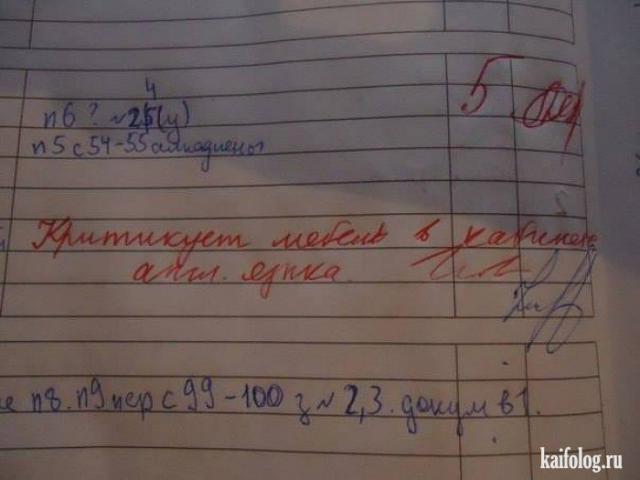 п6? №25(у) 5
4
п5 с54-55 алкадиены
Критикует мебель в кабинете
англ. языка.
п8. п9 пер с 99-100 з №2,3. докум в1.
kaifolog.ru